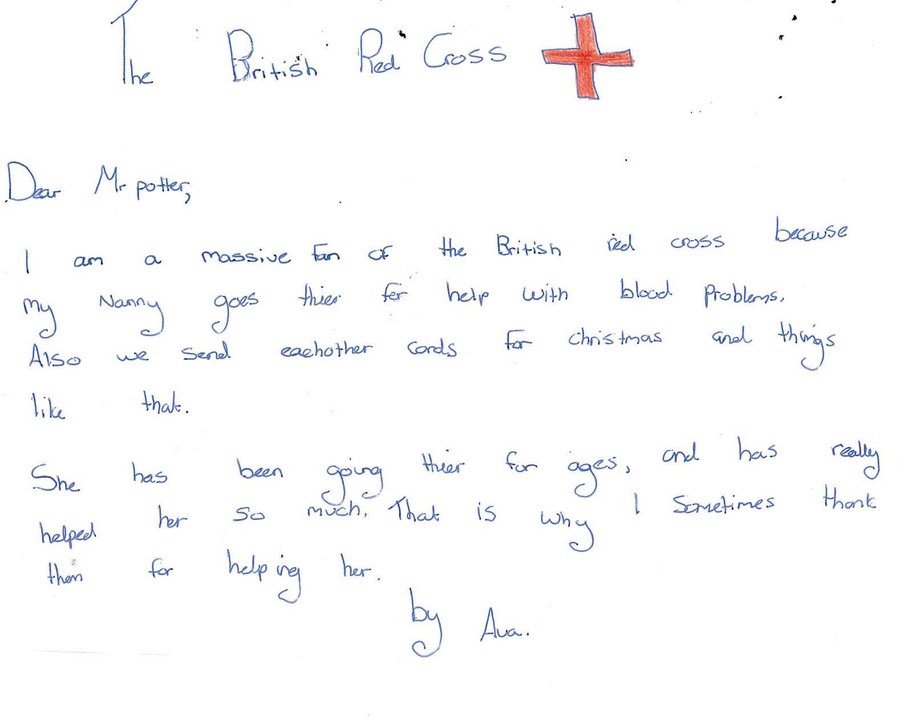 The British Red Cross
Dear Mr potter,
I am a massive fan of the British red cross because
my Nanny goes thier for help with blood problems.
Also we send eachother cards for christmas and things
like that.
She has been going thier for ages, and has really
helped her so much. That is why I sometimes thank
them for helping her.
by Ava.